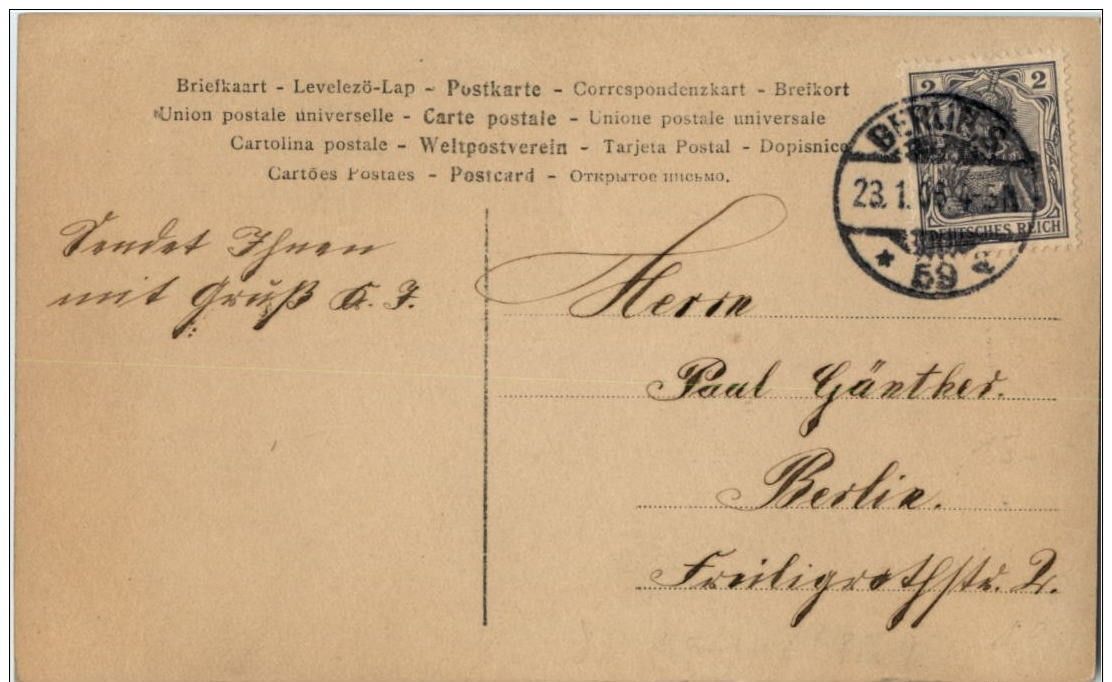 Briefkaart - Levelezö-Lap - Postkarte - Correspondenzkart - Brefkort
Union postale universelle - Carte postale - Unione postale universale
Cartolina postale - Weltpostverein - Tarjeta Postal - Dopisnice
Cartões Postaes - Postcard - Открытое письмо.
2 2
DEUTSCHES REICH
BERLIN S.
23.1.06 4-5N
* 59 a
Sendet Ihnen
mit Gruß K. J.
Herrn
Paul Günther.
Berlin.
Freiligrathstr. 2.